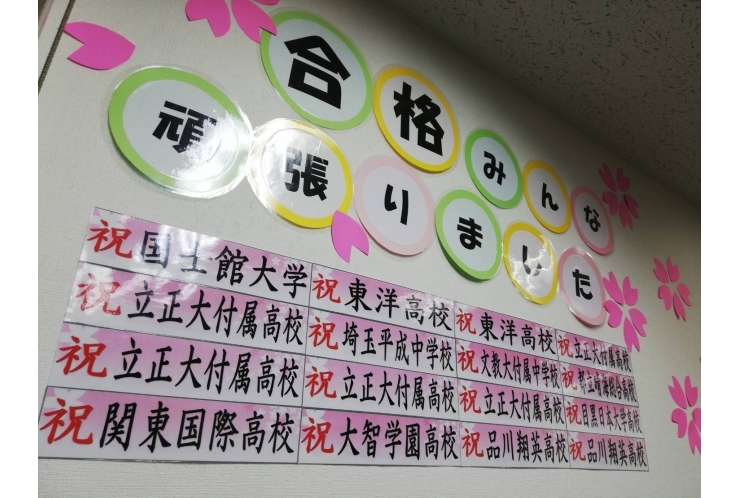 合格みんな
頑張りました
祝国士館大学 祝東洋高校 祝東洋高校 祝立正大付属高校
祝立正大付属高校 祝埼玉平成中学校 祝文教大付属中学校 祝都立晴海総合高校
祝立正大付属高校 祝立正大付属高校 祝立正大付属高校 祝目黒日本大学高校
祝関東国際高校 祝大智学園高校 祝品川翔英高校 祝品川翔英高校